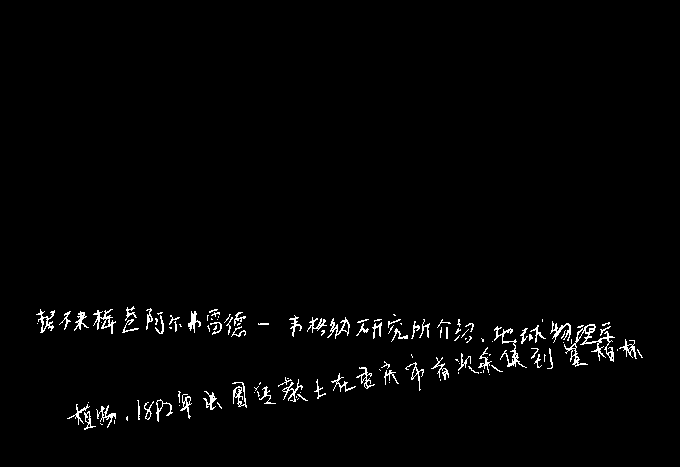 据不来梅港阿尔弗雷德－韦格纳研究所介绍、地球物理学
植物.1892年法国传教士在重庆市首次采集到 模标